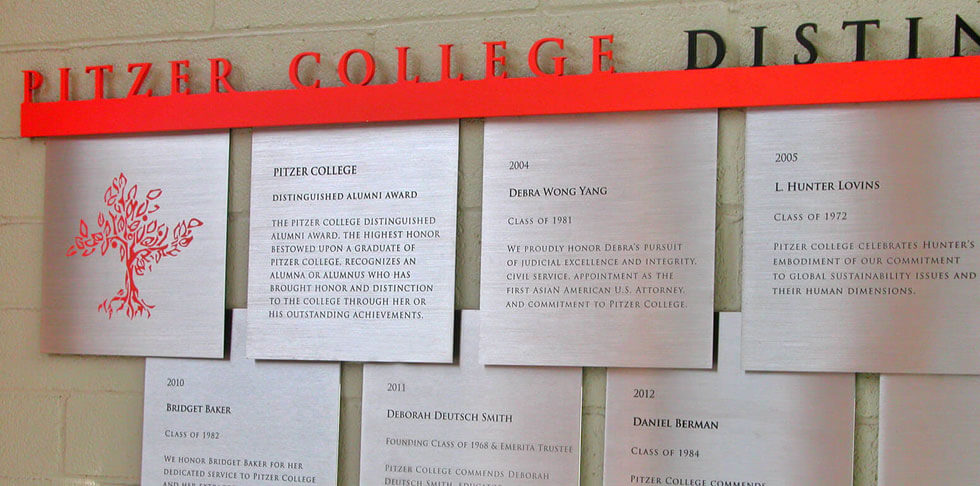 PITZER COLLEGE DISTIN
PITZER COLLEGE
DISTINGUISHED ALUMNI AWARD
THE PITZER COLLEGE DISTINGUISHED
ALUMNI AWARD, THE HIGHEST HONOR
BESTOWED UPON A GRADUATE OF
PITZER COLLEGE, RECOGNIZES AN
ALUMNA OR ALUMNUS WHO HAS
BROUGHT HONOR AND DISTINCTION
TO THE COLLEGE THROUGH HER OR
HIS OUTSTANDING ACHIEVEMENTS.
2004
DEBRA WONG YANG
CLASS OF 1981
WE PROUDLY HONOR DEBRA'S PURSUIT
OF JUDICIAL EXCELLENCE AND INTEGRITY,
CIVIL SERVICE, APPOINTMENT AS THE
FIRST ASIAN AMERICAN U.S. ATTORNEY,
AND COMMITMENT TO PITZER COLLEGE.
2005
L. HUNTER LOVINS
CLASS OF 1972
PITZER COLLEGE CELEBRATES HUNTER'S
EMBODIMENT OF OUR COMMITMENT
TO GLOBAL SUSTAINABILITY ISSUES AND
THEIR HUMAN DIMENSIONS.
2010
BRIDGET BAKER
CLASS OF 1982
WE HONOR BRIDGET BAKER FOR HER
DEDICATED SERVICE TO PITZER COLLEGE
AND HER
2011
DEBORAH DEUTSCH SMITH
FOUNDING CLASS OF 1968 & EMERITA TRUSTEE
PITZER COLLEGE COMMENDS DEBORAH
DEUTSCH SMITH,
2012
DANIEL BERMAN
CLASS OF 1984
PITZER COLLEGE COMMENDS